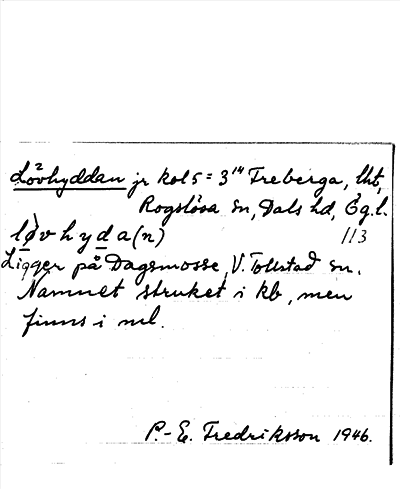 Lövhyddan jr kol 5 = 3¹⁴ Freberga, lht,
Rogslösa sn, Dals hd, Ög.l.
lø̀v hyda(n) 113
Ligger på Dagsmosse, V. Tollstad sn.
Namnet struket i kb, men
finns i ml.
P.-E. Fredriksson 1946.